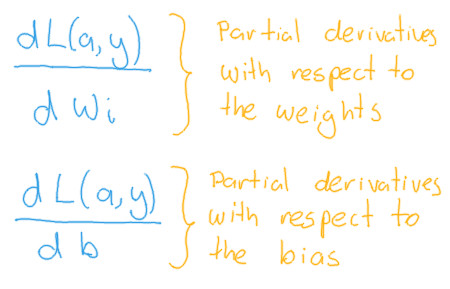 dL(a,y)
d Wi
Partial derivatives
with respect to
the weights
dL(a,y)
d b
Partial derivatives
with respect to
the bias